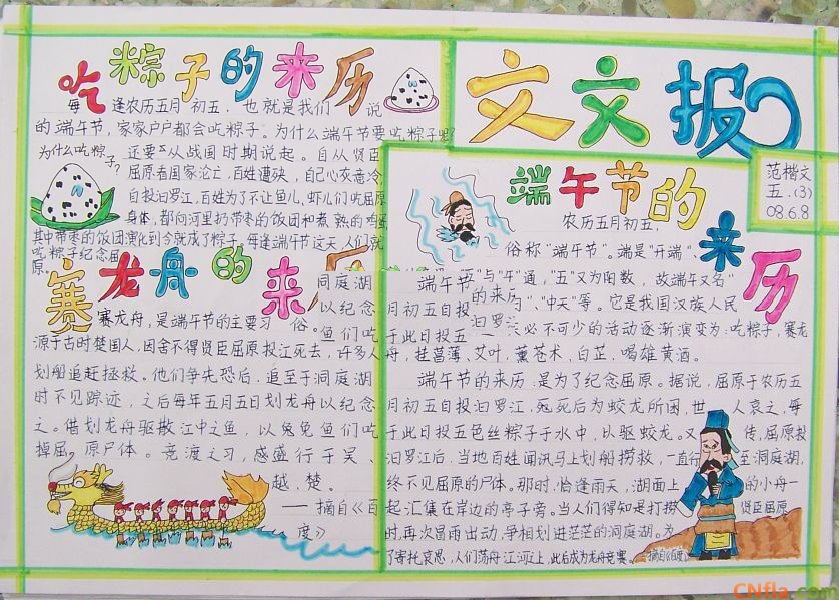 吃粽子的来历
每逢农历五月初五,也就是我们说
的端午节,家家户户都会吃粽子。为什么端午节要吃粽子呢?
为什么吃粽子?
还要从战国时期说起。自从贤臣
屈原看国家沦亡,百姓遭殃,自己心灰意冷,
自投汨罗江,百姓为了不让鱼儿、虾儿们吃屈原
身体,都向河里扔带枣的饭团和煮熟的鸡蛋
其中带枣的饭团演化到今就成了粽子,每逢端午节这天,人们就
吃粽子纪念屈
原。
赛龙舟的来历
赛龙舟,是端午节的主要习俗。
源于古时楚国人,因舍不得贤臣屈原投江死去,许多人
划船追赶拯救。他们争先恐后,追至于洞庭湖
时不见踪迹,之后每年五月五日划龙舟以纪念
之。借划龙舟驱散江中之鱼,以免鱼们吃
掉屈原尸体。竞渡之习,感盛行于吴、
越、楚。
——摘自《百
度》
洞庭湖
以纪念
鱼们吃
文文报
范楷文
五.(3)
08.6.8
端午节的来历
农历五月初五,
俗称"端午节"。端是"开端"、
"与"午"通,"五"又为阳数,故端午又名"
"、"中天"等。它是我国汉族人民
必不可少的活动逐渐演变为:吃粽子,赛龙
舟,挂菖蒲、艾叶,薰苍术,白芷,喝雄黄酒。
端午节
月初五自投
于此日投五
的来历
汨罗
端午节的来历:是为了纪念屈原。据说,屈原于农历五
月初五自投汨罗江,死后为蛟龙所困,世人哀之,每
于此日投五色丝粽子于水中,以驱蛟龙。又传,屈原投
汨罗江后,当地百姓闻讯马上划船捞救,一直行至洞庭湖,
终不见屈原的尸体。那时,恰逢雨天,湖面上的小舟一
起汇集在岸边的亭子旁。当人们得知是打捞贤臣屈原
时,再次冒雨出动,争相划进茫茫的洞庭湖。为
了寄托哀思,人们荡舟江河之上,此后成为龙舟竞赛。
CNfla.com